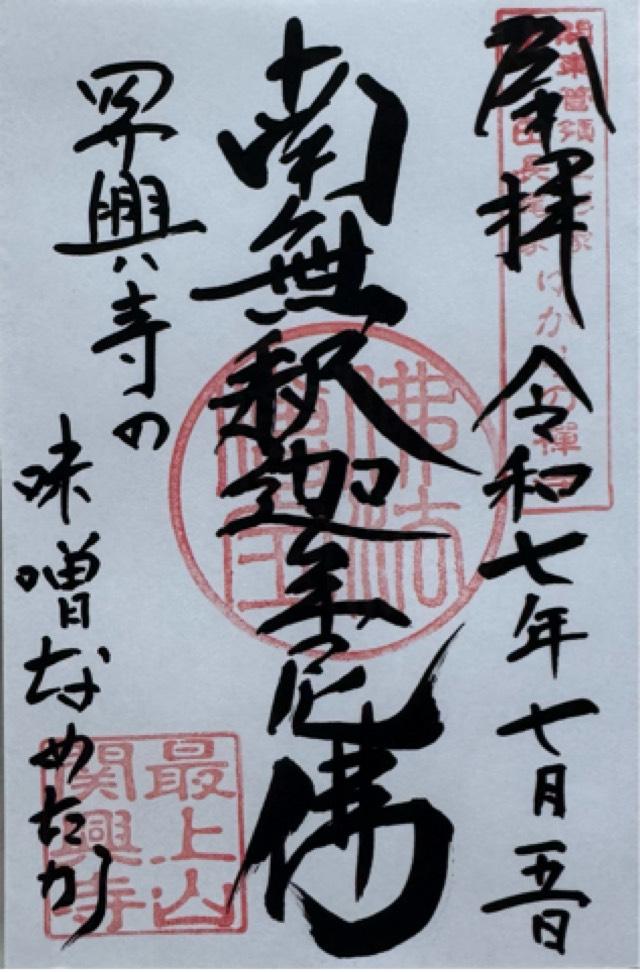 奉拝 令和七年七月五日
南無釈迦牟尼佛
関興寺の
味噌なめたか
関東管領
最上山
関興寺